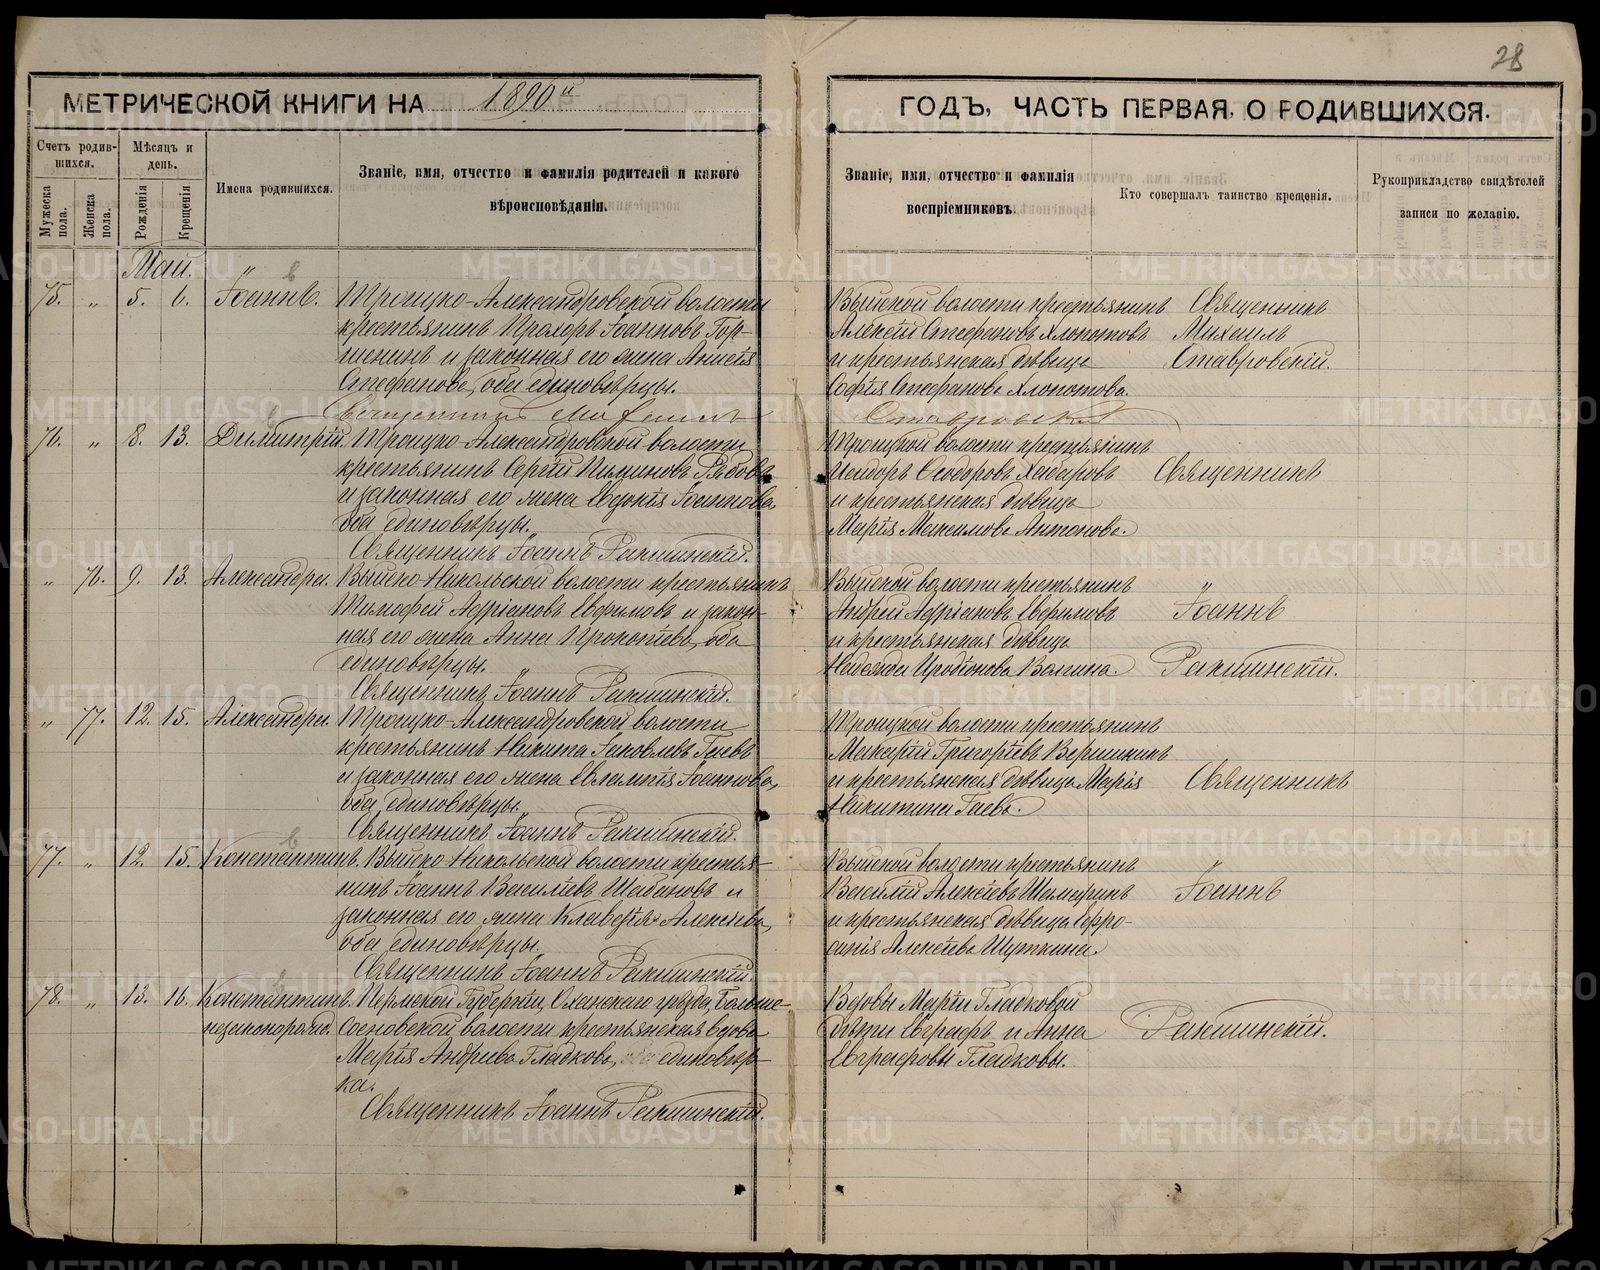 28
МЕТРИЧЕСКОЙ КНИГИ НА 1890й
ГОДЪ, ЧАСТЬ ПЕРВАЯ, О РОДИВШИХСЯ.
Счетъ родившихся.
Мужеска пола.
Женска пола.
Мѣсяцъ и день.
Рожденія
Крещенія
Имена родившихся.
Званіе, имя, отчество и фамилія родителей и какого
вѣроисповѣданія.
Званіе, имя, отчество и фамилія
воспріемниковъ.
Кто совершалъ таинство крещенія.
Рукоприкладство свидѣтелей
записи по желанію.
Май.
75. " 5. 6. Іоаннъ. Троицко-Александровской волости
крестьянинъ Прохоръ Іоанновъ Гор-
шенинъ и законная его жена Анисія
Стефанова, оба единовѣрцы.
Священникъ Михаилъ Ставровскій
Выйской волости крестьянинъ
Алексій Стефановъ Хлопотовъ
и крестьянская дѣвица
Софія Стефанова Хлопотова.
Священникъ
Михаилъ
Ставровскій.
76. " 8. 13. Димитрій. Троицко-Александровской волости
крестьянинъ Сергій Пиминовъ Рябовъ
и законная его жена Евдокія Іоаннова
оба единовѣрцы.
Священникъ Іоаннъ Ракшинскій.
Троицкой волости крестьянинъ
Исидоръ Ѳеодоровъ Хабаровъ
и крестьянская дѣвица
Марія Максимова Антонова.
Священникъ
" 76. 9. 13. Александра. Выйско-Никольской волости крестьянинъ
Тимофей Адріановъ Евфимовъ и закон-
ная его жена Анна Прокопіева, оба
единовѣрцы.
Священникъ Іоаннъ Ракшинскій.
Выйской волости крестьянинъ
Андрей Адріановъ Евфимовъ
и крестьянская дѣвица
Надежда Иродіонова Волгина.
Іоаннъ
Ракшинскій.
" 77. 12. 15. Александра. Троицко-Александровской волости
крестьянинъ Никита Іаковлевъ Гаевъ
и законная его жена Евлампія Іоаннова,
оба единовѣрцы.
Священникъ Іоаннъ Ракшинскій.
Троицкой волости крестьянинъ
Макарій Григорьевъ Вершининъ
и крестьянская дѣвица Марія
Никитина Гаева.
Священникъ
77. " 12. 15. Константинъ. Выйско-Никольской волости крестья-
нинъ Іоаннъ Василіевъ Шабановъ и
законная его жена Клавдія Алексіева,
оба единовѣрцы.
Священникъ Іоаннъ Ракшинскій.
Выйской волости крестьянинъ
Василій Алексіевъ Шамаринъ
и крестьянская дѣвица Евфро-
синія Алексіева Шуткина.
Іоаннъ
78. " 13. 16. Константинъ Пермской Губерніи, Оханскаго уѣзда, Больше-
незаконорожд. Сосновской волости крестьянская вдова
Марія Андреева Гладкова, единовѣр-
ка.
Священникъ Іоаннъ Ракшинскій.
Вдовы Маріи Гладковой
дѣти Евграфъ и Анна
Евграфовы Гладковы.
Ракшинскій.
METRIKI.GASO-URAL.RU